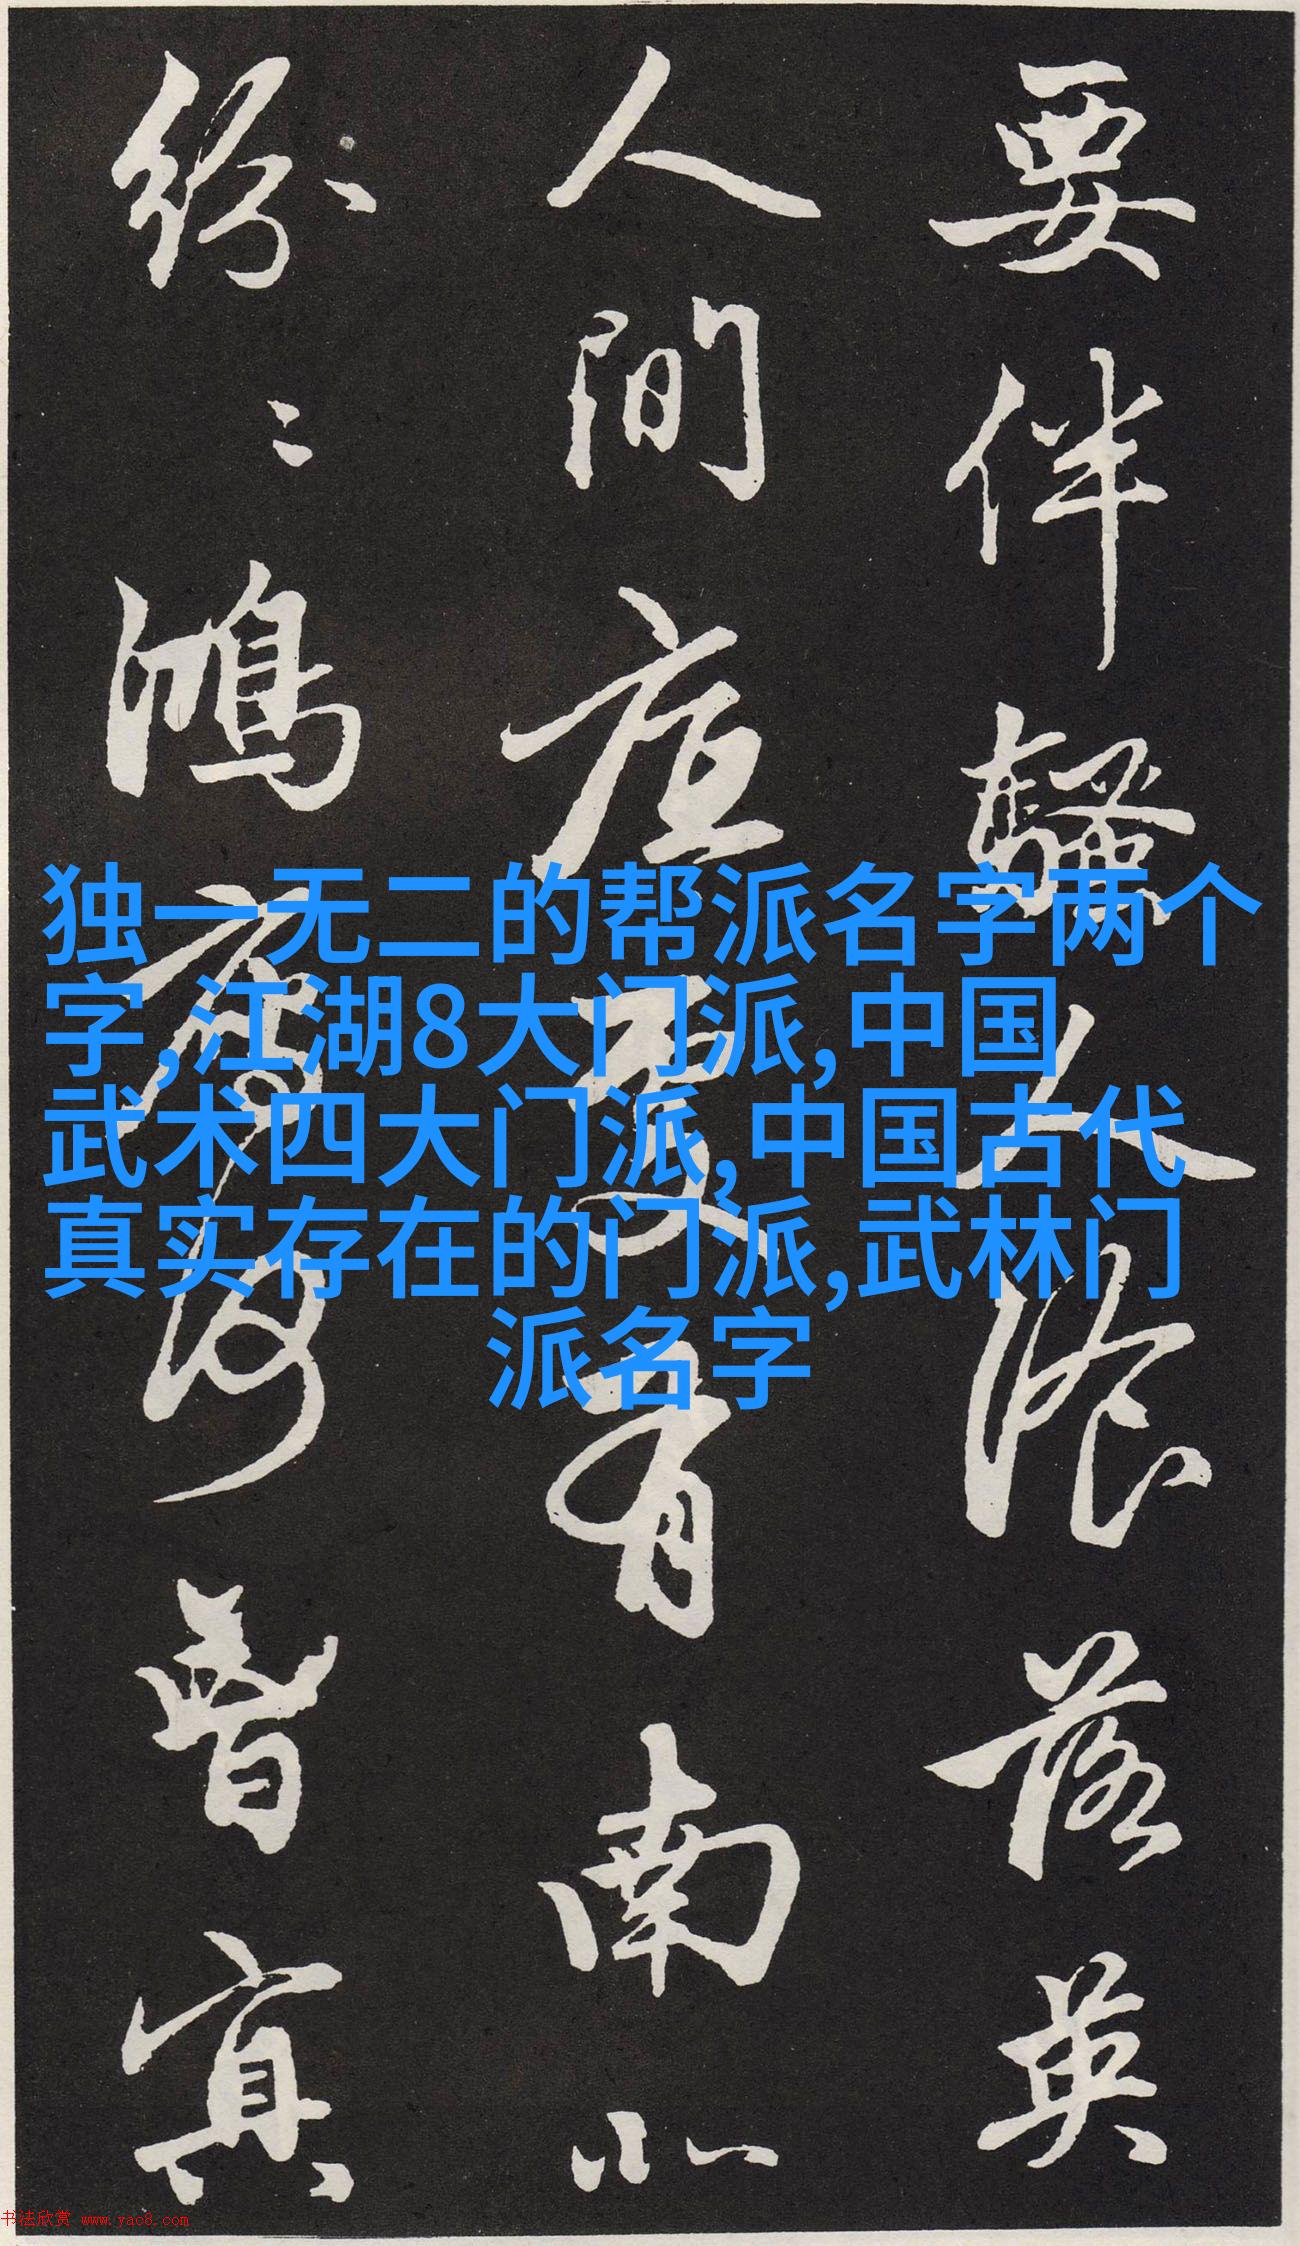 要伴騷人湌落英
人間底處有南北
紛〻鴻鴈何曾冥
独一无二的帮派名字两个
字,江湖8大门派,中国
武术四大门派,中国古代
真实存在的门派,武林门
派名字
书法欣赏 www.yac8.com